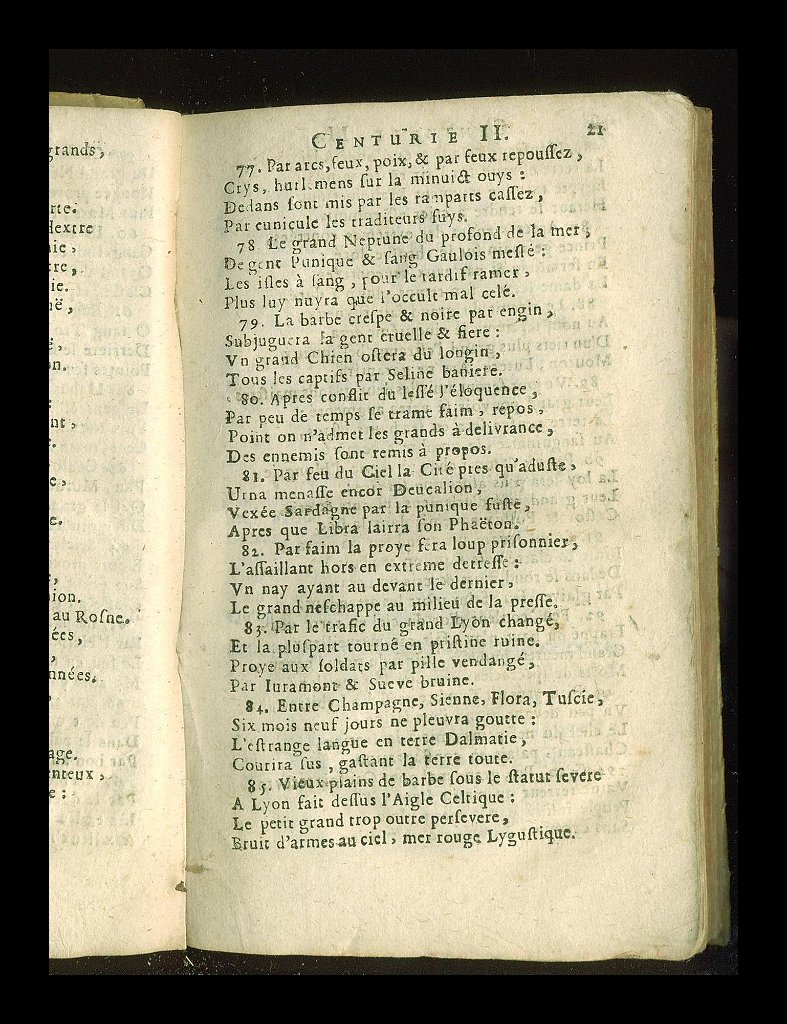 grands,
rte.
dextre
nie,
ere,
ie.
në,
on.
nt,
ion.
au Rosne.
ées,
nnées.
age.
enteux,
e :
CENTURIE II. 21
77. Par arcs, feux, poix, & par feux repoussez,
Crys, hurlemens sur la minuict ouys :
Dedans sont mis par les ramparts cassez,
Par cunicule les traditeurs fuys.
78 Le grand Neptune du profond de la mer,
De gent Punique & sang Gaulois meslé :
Les isles à sang, pour le tardif ramer,
Plus luy nuyra que l'occult mal celé.
79. La barbe crespe & noire par engin,
Subjuguera la gent cruelle & fiere :
Vn grand Chien ostera du longin,
Tous les captifs par Seline baniere.
80. Apres conflit du lessé l'éloquence,
Par peu de temps se trame faim, repos,
Point on n'admet les grands à delivrance,
Des ennemis sont remis à propos.
81. Par feu du Ciel la Cité pres qu'aduste,
Urna menasse encor Deucalion,
Vexée Sardagne par la punique fuste,
Apres que Libra lairra son Phaëton.
82. Par faim la proye fera loup prisonnier,
L'assaillant hors en extreme detresse :
Vn nay ayant au devant le dernier,
Le grand n'eschappe au milieu de la presse.
83. Par le trafic du grand Lyon changé,
Et la pluspart tourné en pristine ruine.
Proye aux soldats par pille vendangé,
Par Iuramont & Sueve bruine.
84. Entre Champagne, Sienne, Flora, Tuscie,
Six mois neuf jours ne pleuvra goutte :
L'estrange langue en terre Dalmatie,
Courira sus, gastant la terre toute.
85. Vieux plains de barbe sous le statut severe
A Lyon fait dessus l'Aigle Celtique :
Le petit grand trop outre persevere,
Bruit d'armes au ciel, mer rouge Lygustique.